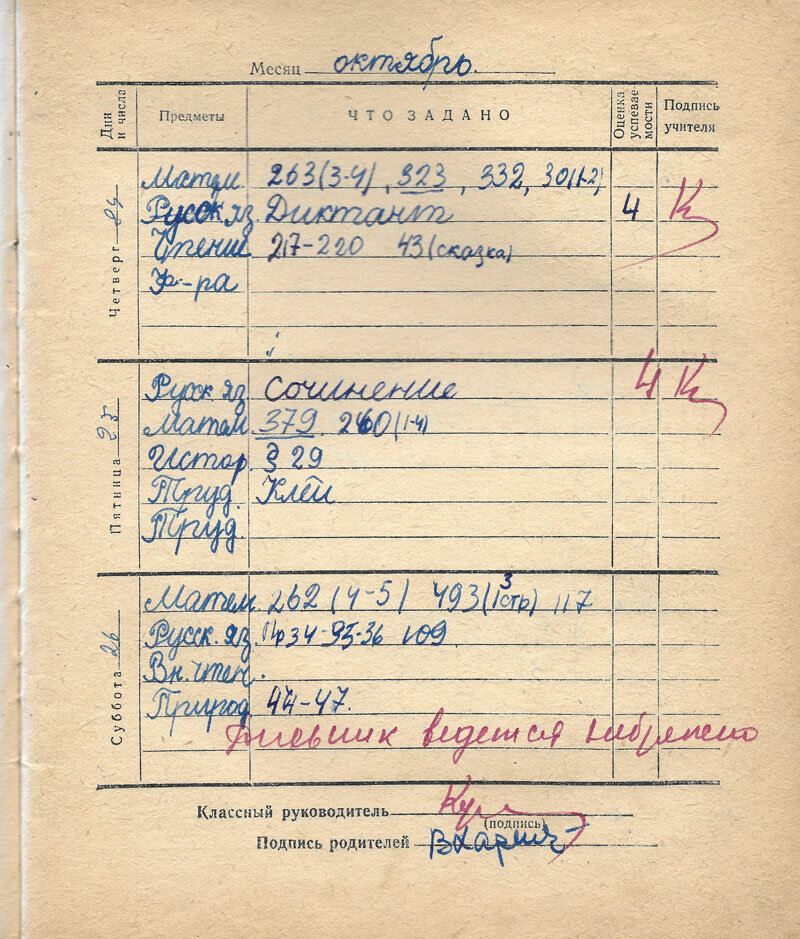 Месяц октябрь.
Дни и числа Предметы ЧТО ЗАДАНО Оценка успеваемости Подпись учителя
Четверг 24
Матем. 263(3-4), 323, 332, 30(1-2)
Русск яз. Диктант 4 К
Чтение 217-220 43(сказка)
Ф-ра
Пятница 25
Русск яз Сочинение 4 К
Матем. 379. 260(1-4)
Истор. § 29
Труд. Клей
Труд.
Суббота 26
Матем. 262 (4-5) 493(3 стр) 117
Русск. яз. Пр 34-35-36 109
Вн. чтен.
Природ 44-47.
Дневник ведется небрежно
Классный руководитель
(подпись)
Подпись родителей